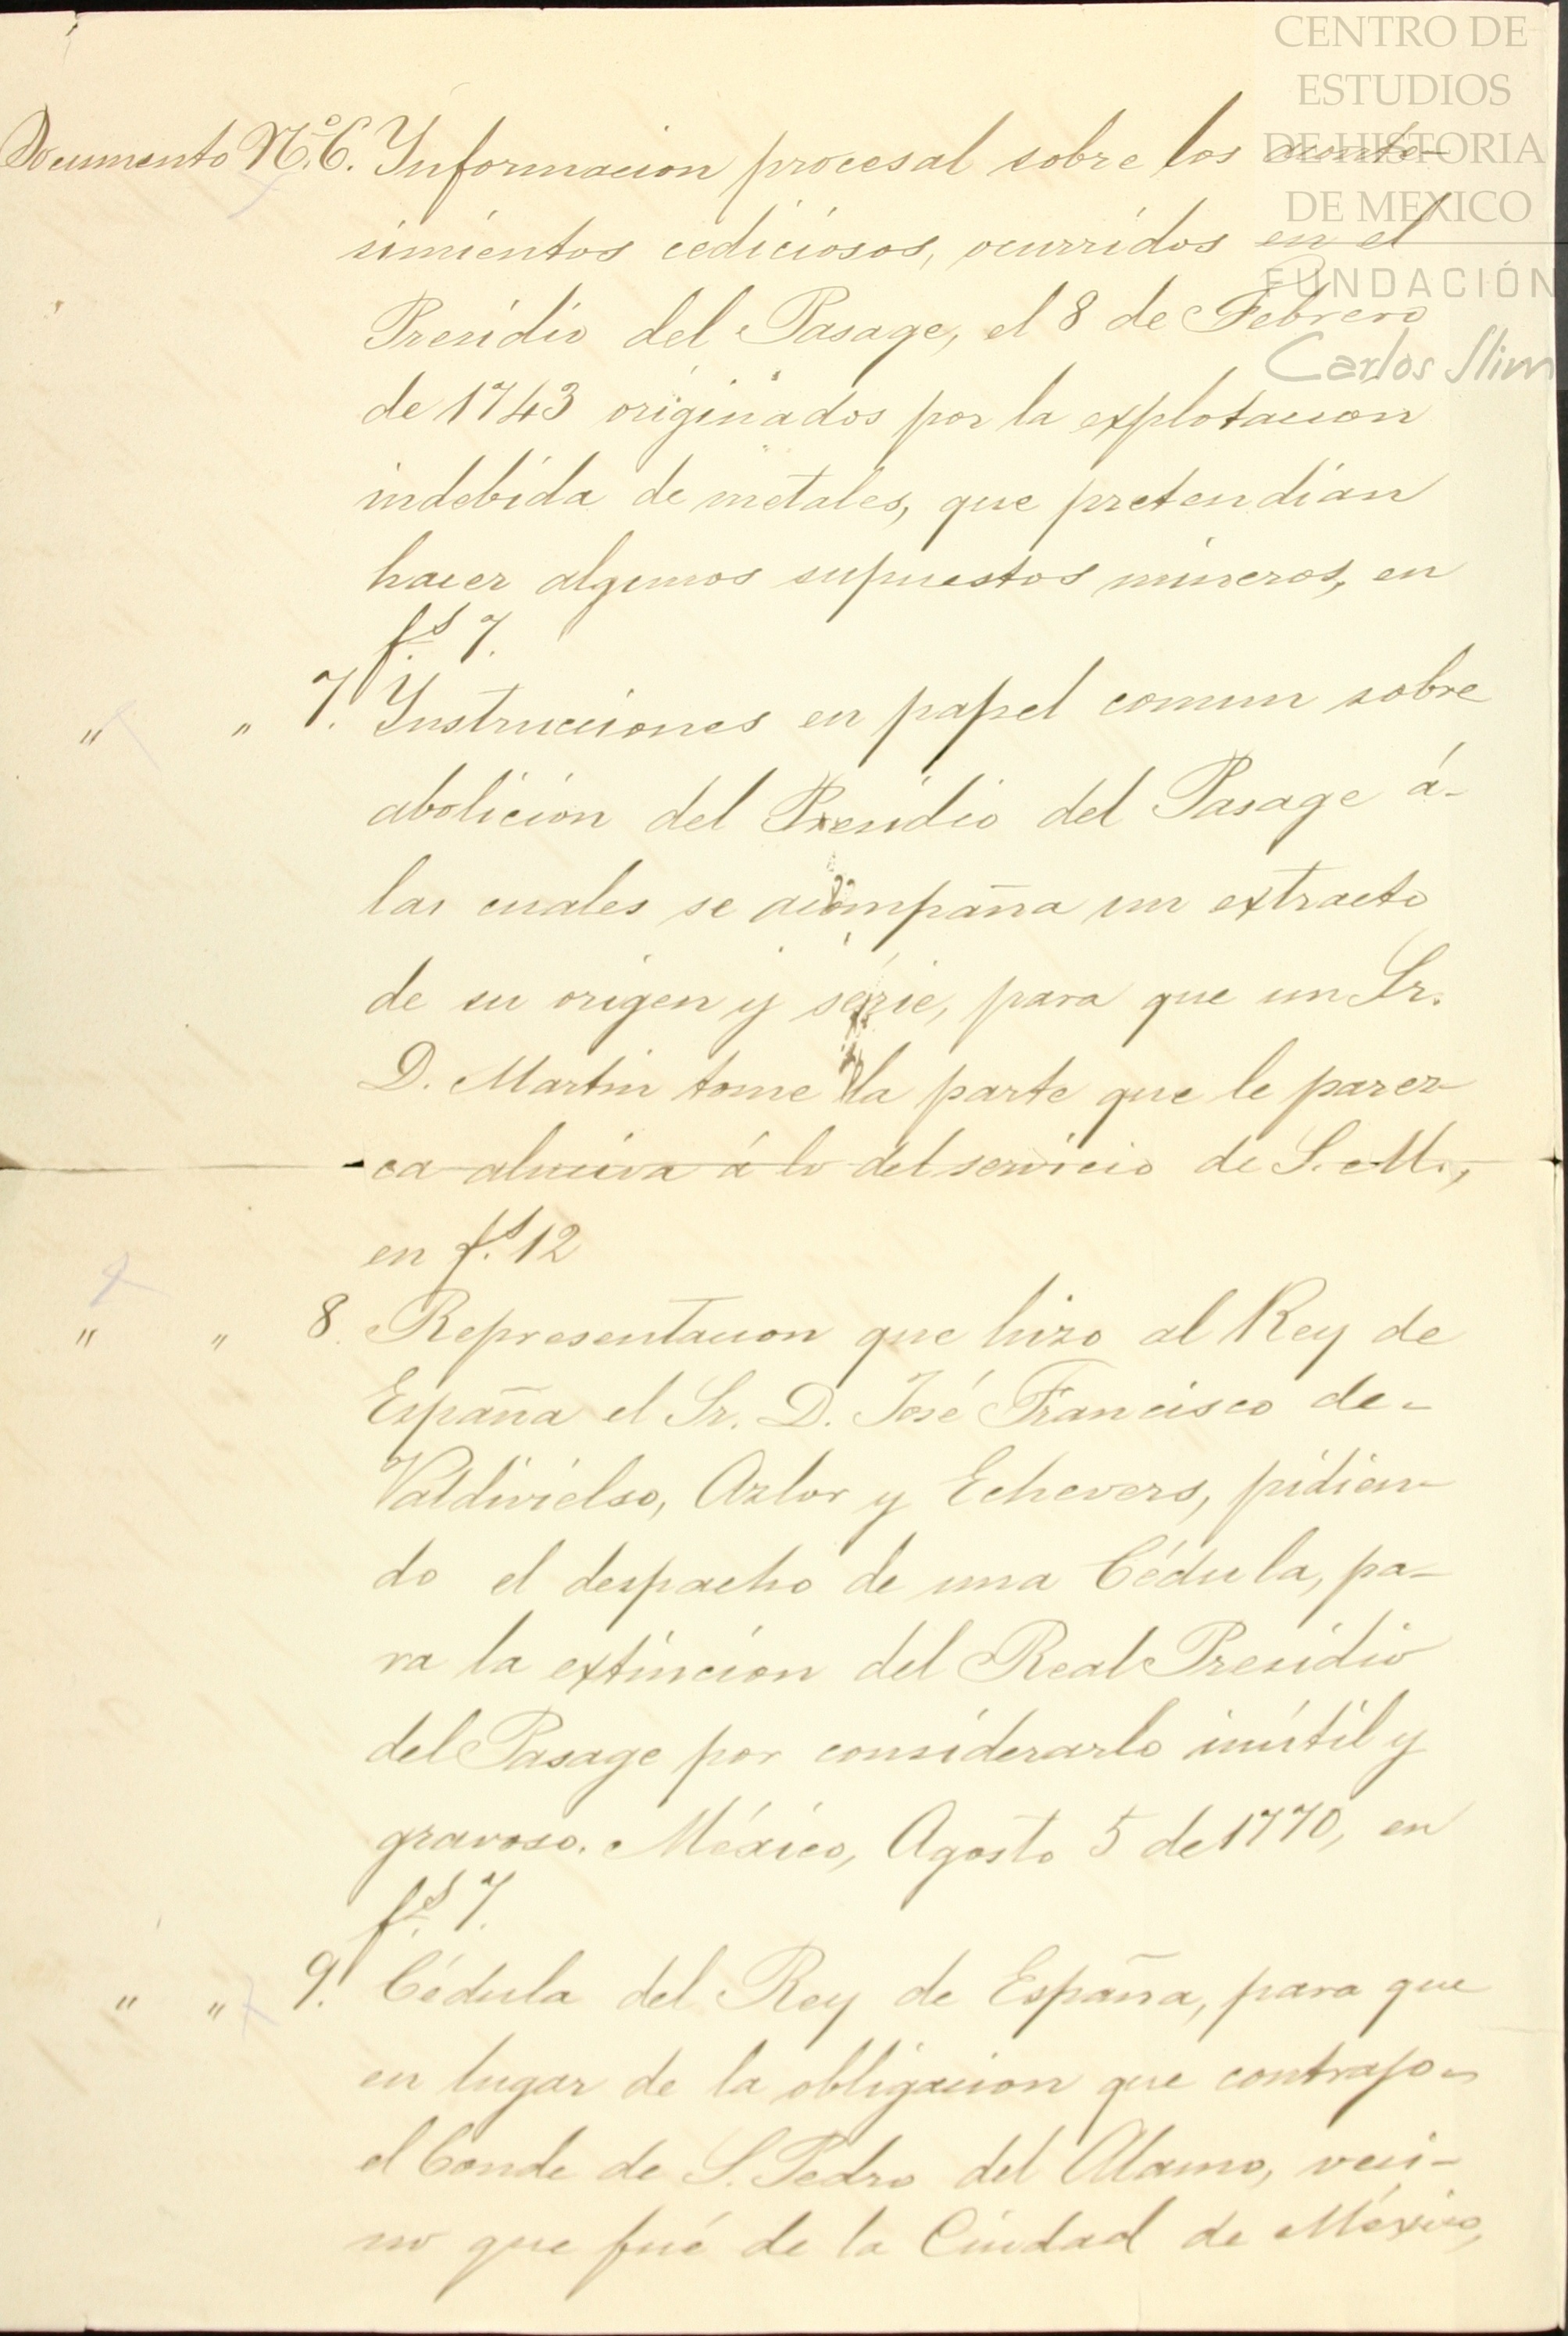 CENTRO DE
ESTUDIOS
DE HISTORIA
DE MEXICO
FUNDACIÓN
Carlos Slim
Documento N.º 6. Informacion procesal sobre los aconte-
simientos cediciosos, ocurridos en el
Presidio del Pasage, el 8 de Febrero
de 1743 originados por la explotacion
indebida de metales, que pretendian
hacer algunos supuestos mineros, en
f.s 7.
" " 7. Instrucciones en papel comun sobre
abolicion del Presidio del Pasage á-
las cuales se acompaña un extracto
de su origen y série, para que un Sr.
D. Martin tome la parte que le parez-
ca á lo del servicio de S. M.,
en f.s 12
" " 8. Representacion que hizo al Rey de
España el Sr. D. José Francisco de-
Valdivielso, Azlor y Echevers, pidien-
do el despacho de una Cédula, pa-
ra la extincion del Real Presidio
del Pasage por considerarlo inútil y
gravoso. México, Agosto 5 de 1770, en
f.s 7.
" " 9. Cédula del Rey de España, para que
en lugar de la obligacion que contrajo-
el Conde de S. Pedro del Alamo, veci-
no que fué de la Ciudad de México,